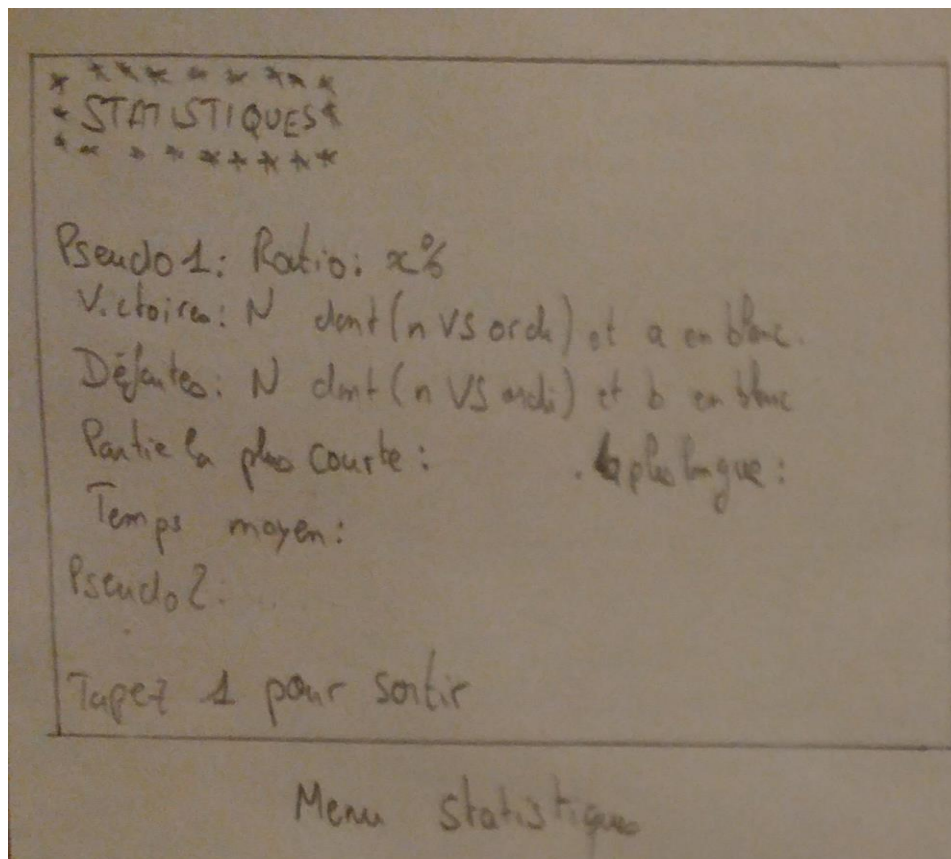 * * * * * * * * *
* STATISTIQUES *
* * * * * * * * *
Pseudo 1: Ratio: x%
Victoires: N dont (n VS ordi) et a en blanc.
Défaites: N dont (n VS ordi) et b en blanc
Partie la plus courte: . la plus longue:
Temps moyen:
Pseudo 2:
Tapez 1 pour sortir
Menu statistiques